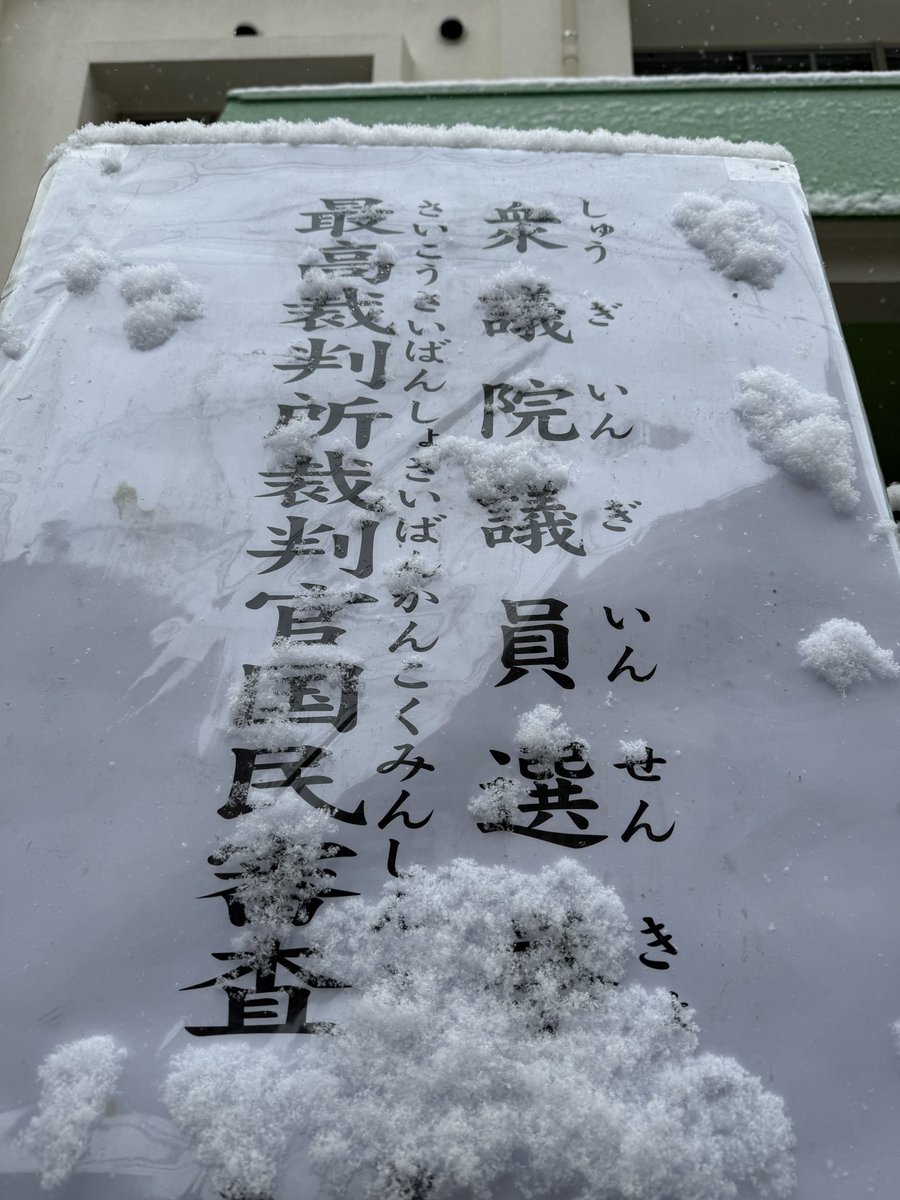 衆議院議員選
しゅうぎいんぎいんせんき
最高裁判所裁判官国民審査
さいこうさいばんしょさいばんかんこくみんし